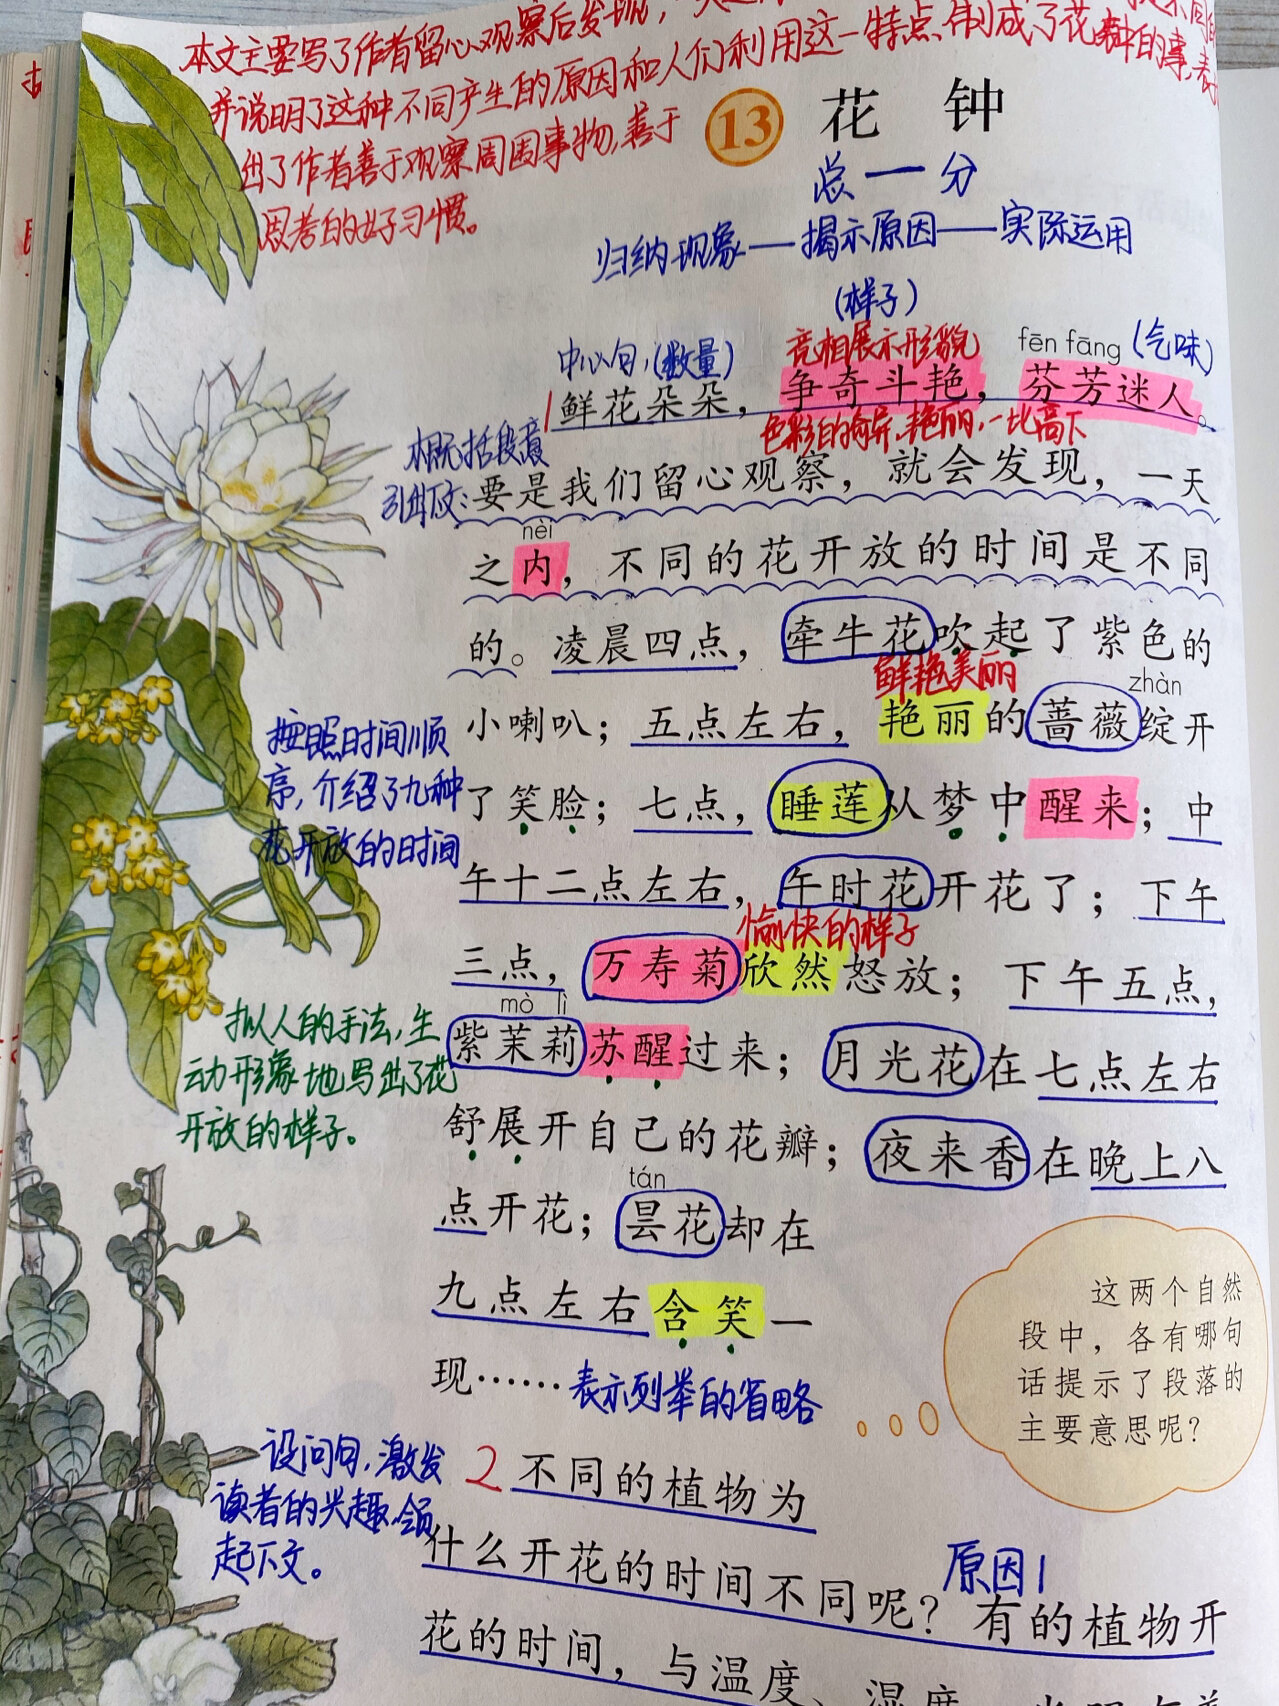 本文主要写了作者留心观察后发现，一天之
并说明了这种不同产生的原因和人们利用这一特点制成了花钟的事，表
出了作者善于观察周围事物，善于
思考的好习惯。
13 花 钟
总一分
归纳现象—揭示原因—实际运用
(样子)
中心句，(数量)
亮相展示形貌
fēn fāng (气味)
1 鲜花朵朵，争奇斗艳，芬芳迷人。
色彩的奇异、艳丽，一比高下
概括段意
引出下文：
要是我们留心观察，就会发现，一天
nèi
之内，不同的花开放的时间是不同
的。凌晨四点，牵牛花吹起了紫色的
鲜艳美丽
zhàn
小喇叭；五点左右，艳丽的蔷薇绽开
了笑脸；七点，睡莲从梦中醒来；中
午十二点左右，午时花开花了；下午
愉快的样子
三点，万寿菊欣然怒放；下午五点，
mò lì
紫茉莉苏醒过来；月光花在七点左右
舒展开自己的花瓣；夜来香在晚上八
tán
点开花；昙花却在
九点左右含笑一
现……
表示列举的省略
按照时间顺
序，介绍了九种
花开放的时间
拟人的手法，生
动形象地写出了花
开放的样子。
这两个自然
段中，各有哪句
话提示了段落的
主要意思呢？
设问句，激发
读者的兴趣，领
起下文。
2 不同的植物为
什么开花的时间不同呢？有的植物开
原因1
花的时间，与温度、湿度、